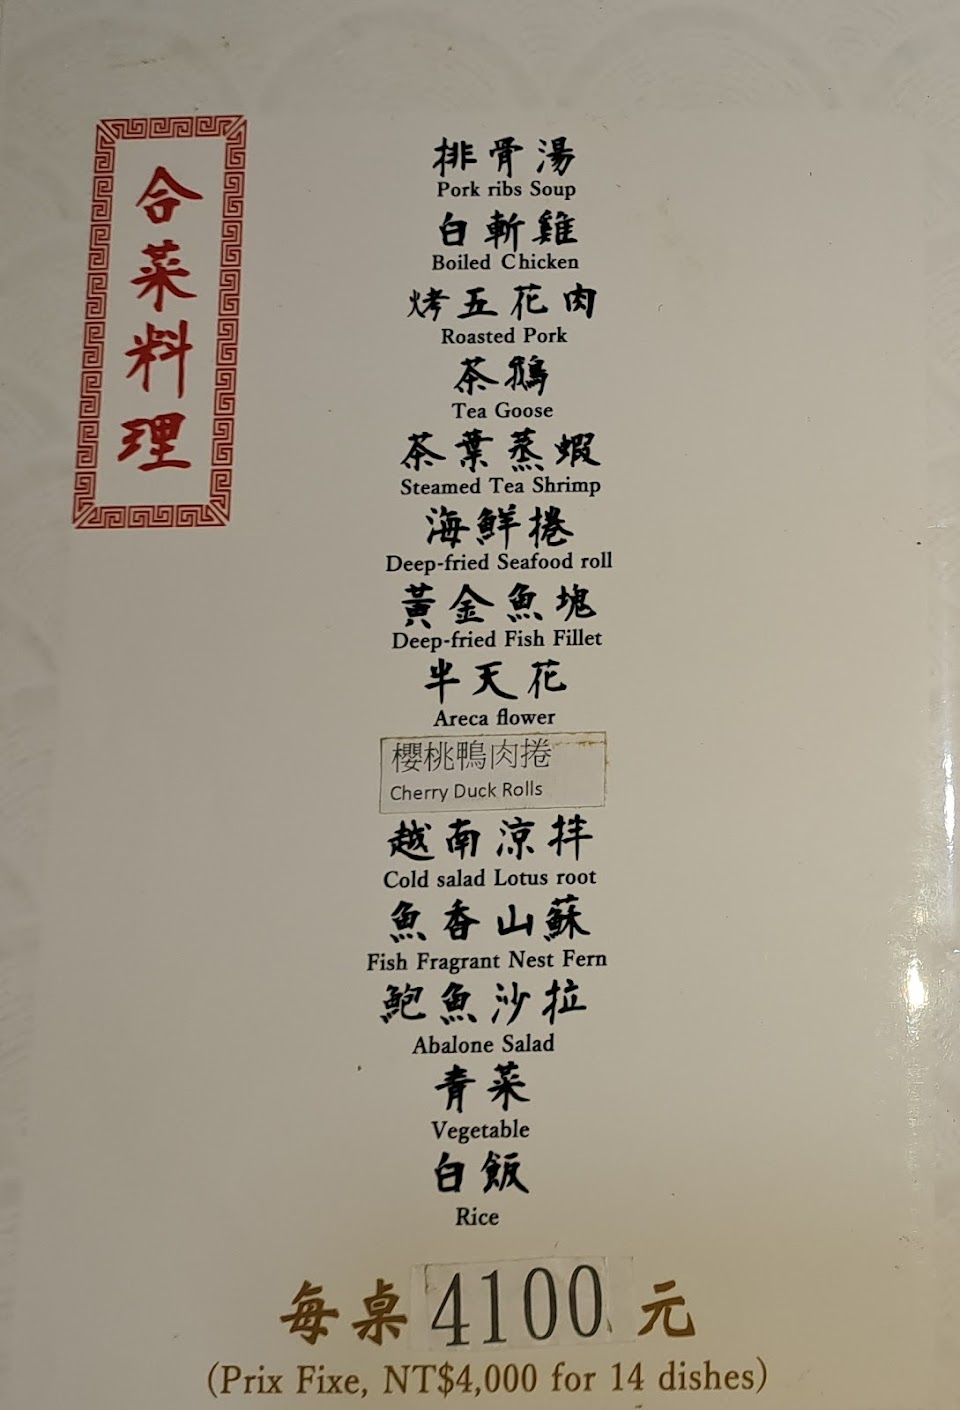 合菜料理
排骨湯
Pork ribs Soup
白斬雞
Boiled Chicken
烤五花肉
Roasted Pork
茶鵝
Tea Goose
茶葉蒸蝦
Steamed Tea Shrimp
海鮮捲
Deep-fried Seafood roll
黃金魚塊
Deep-fried Fish Fillet
半天花
Areca flower
櫻桃鴨肉捲
Cherry Duck Rolls
越南涼拌
Cold salad Lotus root
魚香山蘇
Fish Fragrant Nest Fern
鮑魚沙拉
Abalone Salad
青菜
Vegetable
白飯
Rice
每桌4100元
(Prix Fixe, NT$4,000 for 14 dishes)